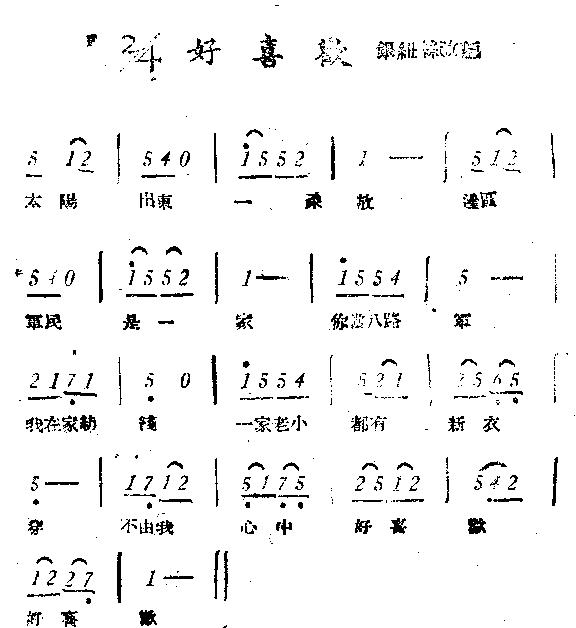 2/4 好喜歡
5 12 | 540 | 1552 | 1 — | 512 |
太陽 出東 一 放 邊區
540 | 1552 | 1 — | 1554 | 5 — |
軍民 是一 家 你當八路 軍
2171 | 5 0 | 1554 | 521 | 2565 |
我在家紡 綫 一家老小 都有 新衣
5 — | 1712 | 5175 | 2512 | 542 |
穿 不由我 心中 好喜 歡
1227 | 1 — ‖
好喜 歡